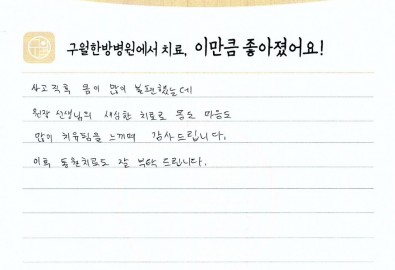 구월한방병원에서 치료, 이만큼 좋아졌어요!
사고직후 몸이 많이 불편했는데
원장 선생님의 세심한 치료로 몸도 마음도
많이 치유됨을 느끼며 감사드립니다.
이후 통원치료도 잘 부탁 드립니다.